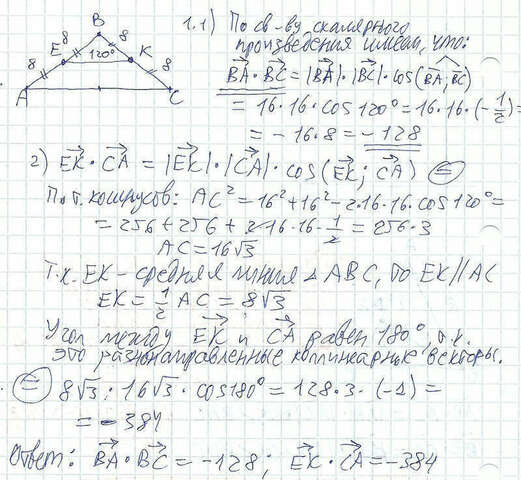 B
8 8
E 120° K
8 8
A C
1.1) По св-ву скалярного
произведения имеем, что:
BA · BC = |BA| · |BC| · cos(BA; BC)
= 16·16·cos 120° = 16·16·(-1/2) =
= -16·8 = -128
2) EK · CA = |EK| · |CA| · cos(EK; CA) =
По т. косинусов: AC² = 16² + 16² - 2·16·16·cos 120° =
= 256 + 256 + 2·16·16·1/2 = 256·3
AC = 16√3
Т.к. EK - средняя линия △ ABC, то EK || AC
EK = 1/2 AC = 8√3
Угол между EK и CA равен 180°, т.к.
это разнонаправленные коллинеарные векторы.
= 8√3 · 16√3 · cos 180° = 128·3·(-1) =
= -384
Ответ: BA · BC = -128; EK · CA = -384